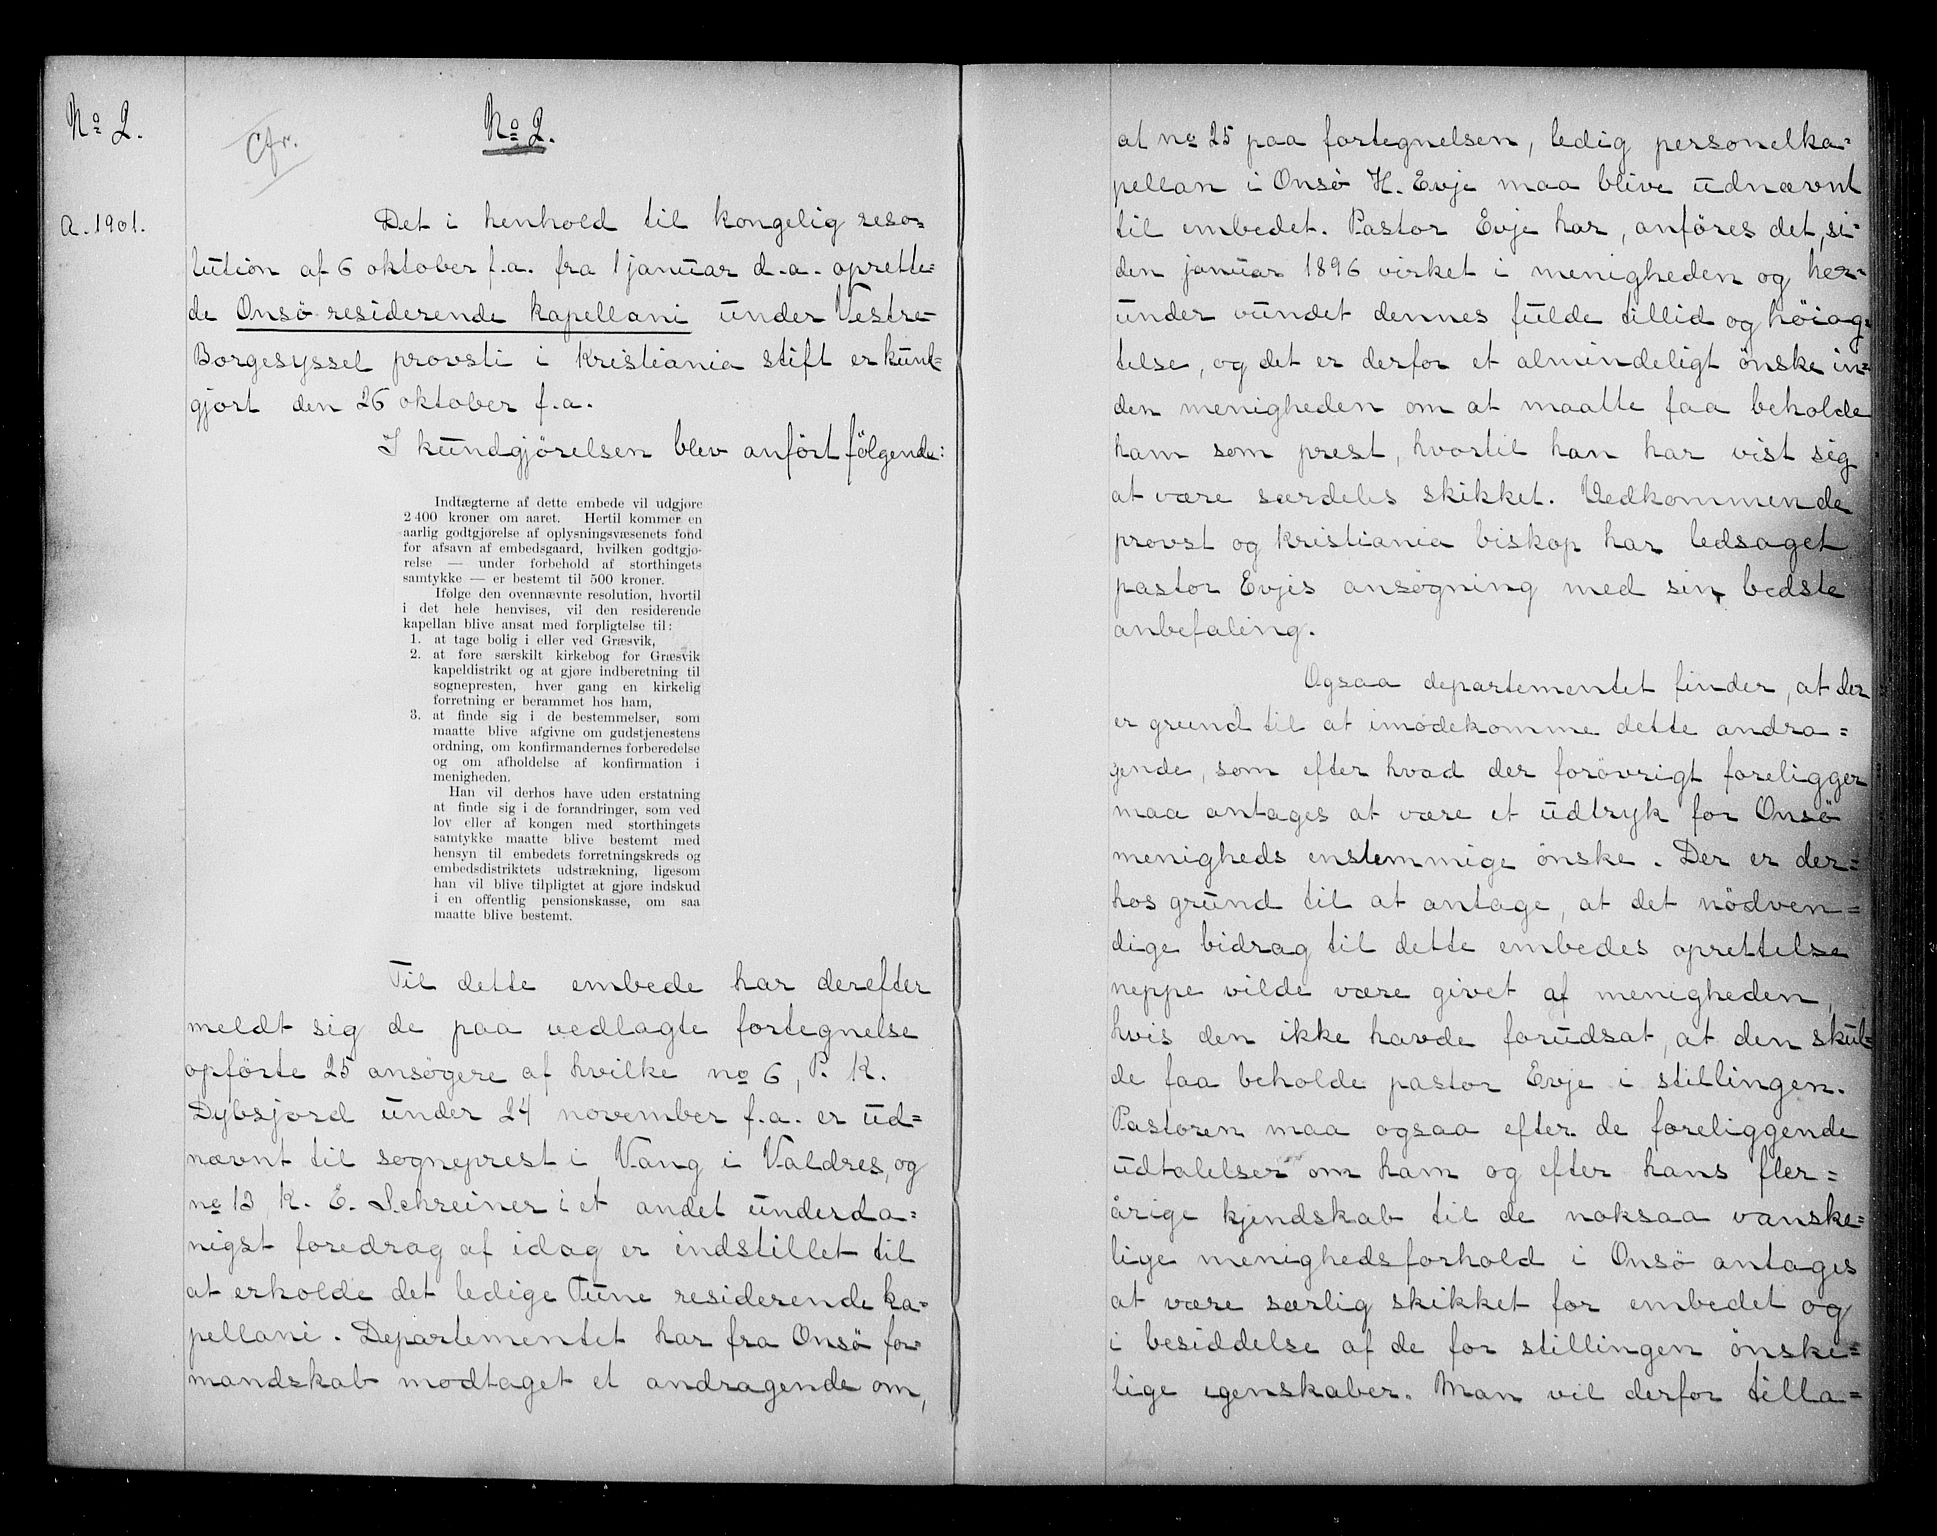 No 2.
Cfr.
No 2.
a. 1901.
Det i henhold til kongelig reso=
lution af 6 oktober f.a. fra 1 januar d.a. oprette=
de Onsø residerende kapellani under Vestre
Borgesyssel provsti i Kristiania stift er kund=
gjort den 26 oktober f.a.
I kundgjørelsen blev anført følgende:
Indtægterne af dette embede vil udgjøre
2 400 kroner om aaret. Hertil kommer en
aarlig godtgjørelse af oplysningsvæsenets fond
for afsavn af embedsgaard, hvilken godtgjø-
relse — under forbehold af storthingets
samtykke — er bestemt til 500 kroner.
Ifølge den ovennævnte resolution, hvortil
i det hele henvises, vil den residerende
kapellan blive ansat med forpligtelse til:
1. at tage bolig i eller ved Græsvik,
2. at føre særskilt kirkebog for Græsvik
kapeldistrikt og at gjøre indberetning til
sognepresten, hver gang en kirkelig
forretning er berammet hos ham,
3. at finde sig i de bestemmelser, som
maatte blive afgivne om gudstjenestens
ordning, om konfirmandernes forberedelse
og om afholdelse af konfirmation i
menigheden.
Han vil derhos have uden erstatning
at finde sig i de forandringer, som ved
lov eller af kongen med storthingets
samtykke maatte blive bestemt med
hensyn til embedets forretningskreds og
embedsdistriktets udstrækning, ligesom
han vil blive tilpligtet at gjøre indskud
i en offentlig pensionskasse, om saa
maatte blive bestemt.
Til dette embede har derefter
meldt sig de paa vedlagte fortegnelse
opførte 25 ansøgere af hvilke no 6, P. K.
Dybsjord under 24 november f.a. er ud=
nævnt til sogneprest i Vang i Valdres, og
no 13 K. E. Schreiner i et andet underda=
nigst foredrag af idag er indstillet til
at erholde det ledige Tune residerende ka=
pellani. Departementet har fra Onsø for=
mandskab modtaget et andragende om,
at no 25 paa fortegnelsen, ledig personelka=
pellan i Onsø H. Evje maa blive udnævnt
til embedet. Pastor Evje har, anføres det, si=
den januar 1896 virket i menigheden og her=
under vundet dennes fulde tillid og høiag=
telse, og det er derfor et almindeligt ønske in=
den menigheden om at maatte faa beholde
ham som prest, hvortil han har vist sig
at være særdeles skikket. Vedkommende
provst og Kristiania biskop har ledsaget
pastor Evjes ansøgning med sin bedste
anbefaling.
Ogsaa departementet finder, at der
er grund til at imødekomme dette andra=
gende, som efter hvad der forøvrigt foreligger
maa antages at være et udtryk for Onsø
menigheds enstemmige ønske. Der er der=
hos grund til at antage, at det nødven=
dige bidrag til dette embedes oprettelse
neppe vilde være givet af menigheden,
hvis den ikke havde forudsat, at den skul=
de faa beholde pastor Evje i stillingen.
Pastoren maa ogsaa efter de foreliggende
udtalelser om ham og efter hans fler=
årige kjendskab til de noksaa vanske=
lige menighedsforhold i Onsø antages
at være særlig skikket for embedet og
i besiddelse af de for stillingen ønske=
lige egenskaber. Man vil derfor tilla=